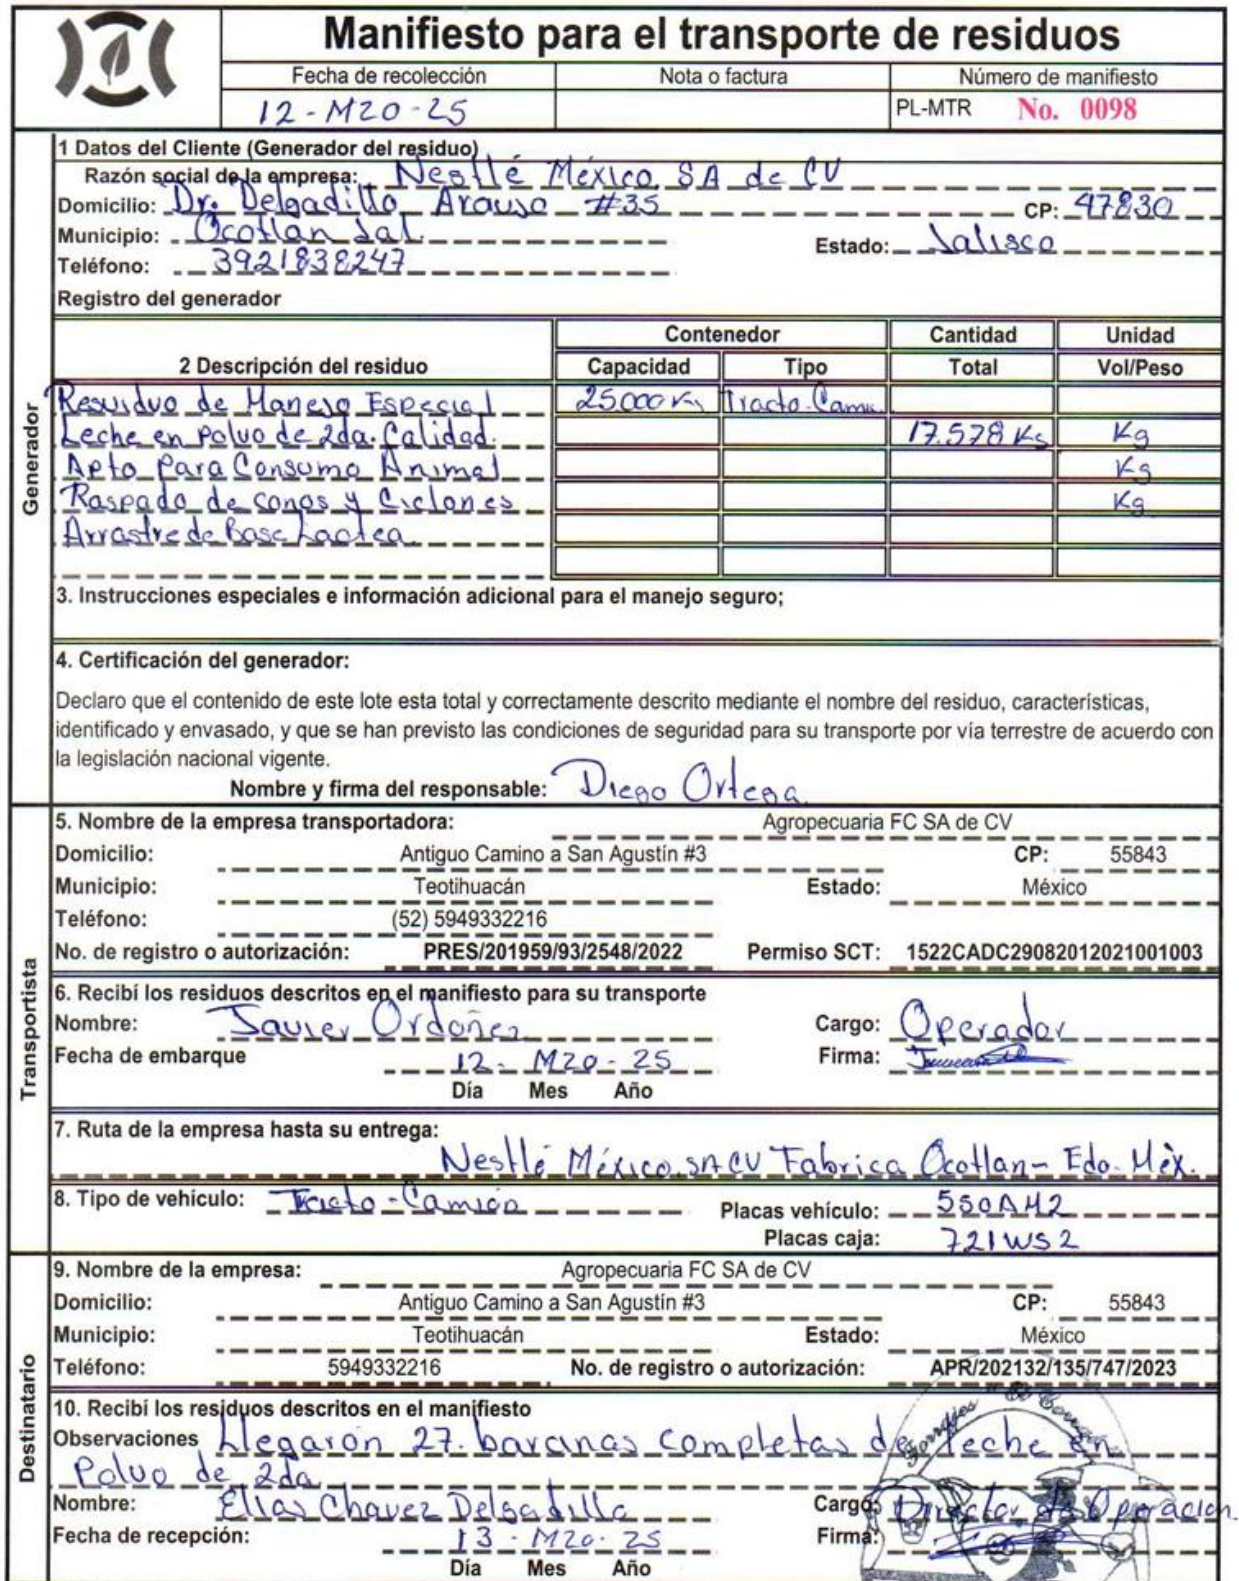 Manifiesto para el transporte de residuos
Fecha de recolección Nota o factura Número de manifiesto
12-Mzo-25 PL-MTR No. 0098
1 Datos del Cliente (Generador del residuo)
Razón social de la empresa: Nestlé México SA de CV
Domicilio: Dr. Delgadillo Araujo #35 CP: 47830
Municipio: Ocotlan Jal. Estado: Jalisco
Teléfono: 3921838247
Registro del generador
Contenedor Cantidad Unidad
2 Descripción del residuo Capacidad Tipo Total Vol/Peso
Residuo de Manejo Especial 25000 Kg Tracto-Cami.
Leche en Polvo de 2da. Calidad. 17.578 Kg Kg
Apto Para Consumo Animal Kg
Raspado de conos y Ciclones Kg
Arrastre de Base Lactea
3. Instrucciones especiales e información adicional para el manejo seguro;
4. Certificación del generador:
Declaro que el contenido de este lote esta total y correctamente descrito mediante el nombre del residuo, características,
identificado y envasado, y que se han previsto las condiciones de seguridad para su transporte por vía terrestre de acuerdo con
la legislación nacional vigente.
Nombre y firma del responsable: Diego Ortega
Generador
5. Nombre de la empresa transportadora: Agropecuaria FC SA de CV
Domicilio: Antiguo Camino a San Agustín #3 CP: 55843
Municipio: Teotihuacán Estado: México
Teléfono: (52) 5949332216
No. de registro o autorización: PRES/201959/93/2548/2022 Permiso SCT: 1522CADC29082012021001003
6. Recibí los residuos descritos en el manifiesto para su transporte
Nombre: Javier Ordoñez Cargo: Operador
Fecha de embarque 12-Mzo-25 Firma:
Día Mes Año
7. Ruta de la empresa hasta su entrega:
Nestlé México. SA CV Fabrica Ocotlan- Edo. Méx.
8. Tipo de vehículo: Tracto-Camión Placas vehículo: 550AM2
Placas caja: 721WS2
Transportista
9. Nombre de la empresa: Agropecuaria FC SA de CV
Domicilio: Antiguo Camino a San Agustín #3 CP: 55843
Municipio: Teotihuacán Estado: México
Teléfono: 5949332216 No. de registro o autorización: APR/202132/135/747/2023
10. Recibí los residuos descritos en el manifiesto
Observaciones Llegarón 27. baranas completas de leche en
Polvo de 2da
Nombre: Elias Chavez Delgadillo Cargo: Director de Operacion.
Fecha de recepción: 13-Mzo-25 Firma:
Día Mes Año
Destinatario
Forrajes "El Corral"